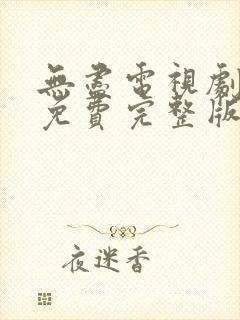 無盡電視劇
免費完整版
夜迷香